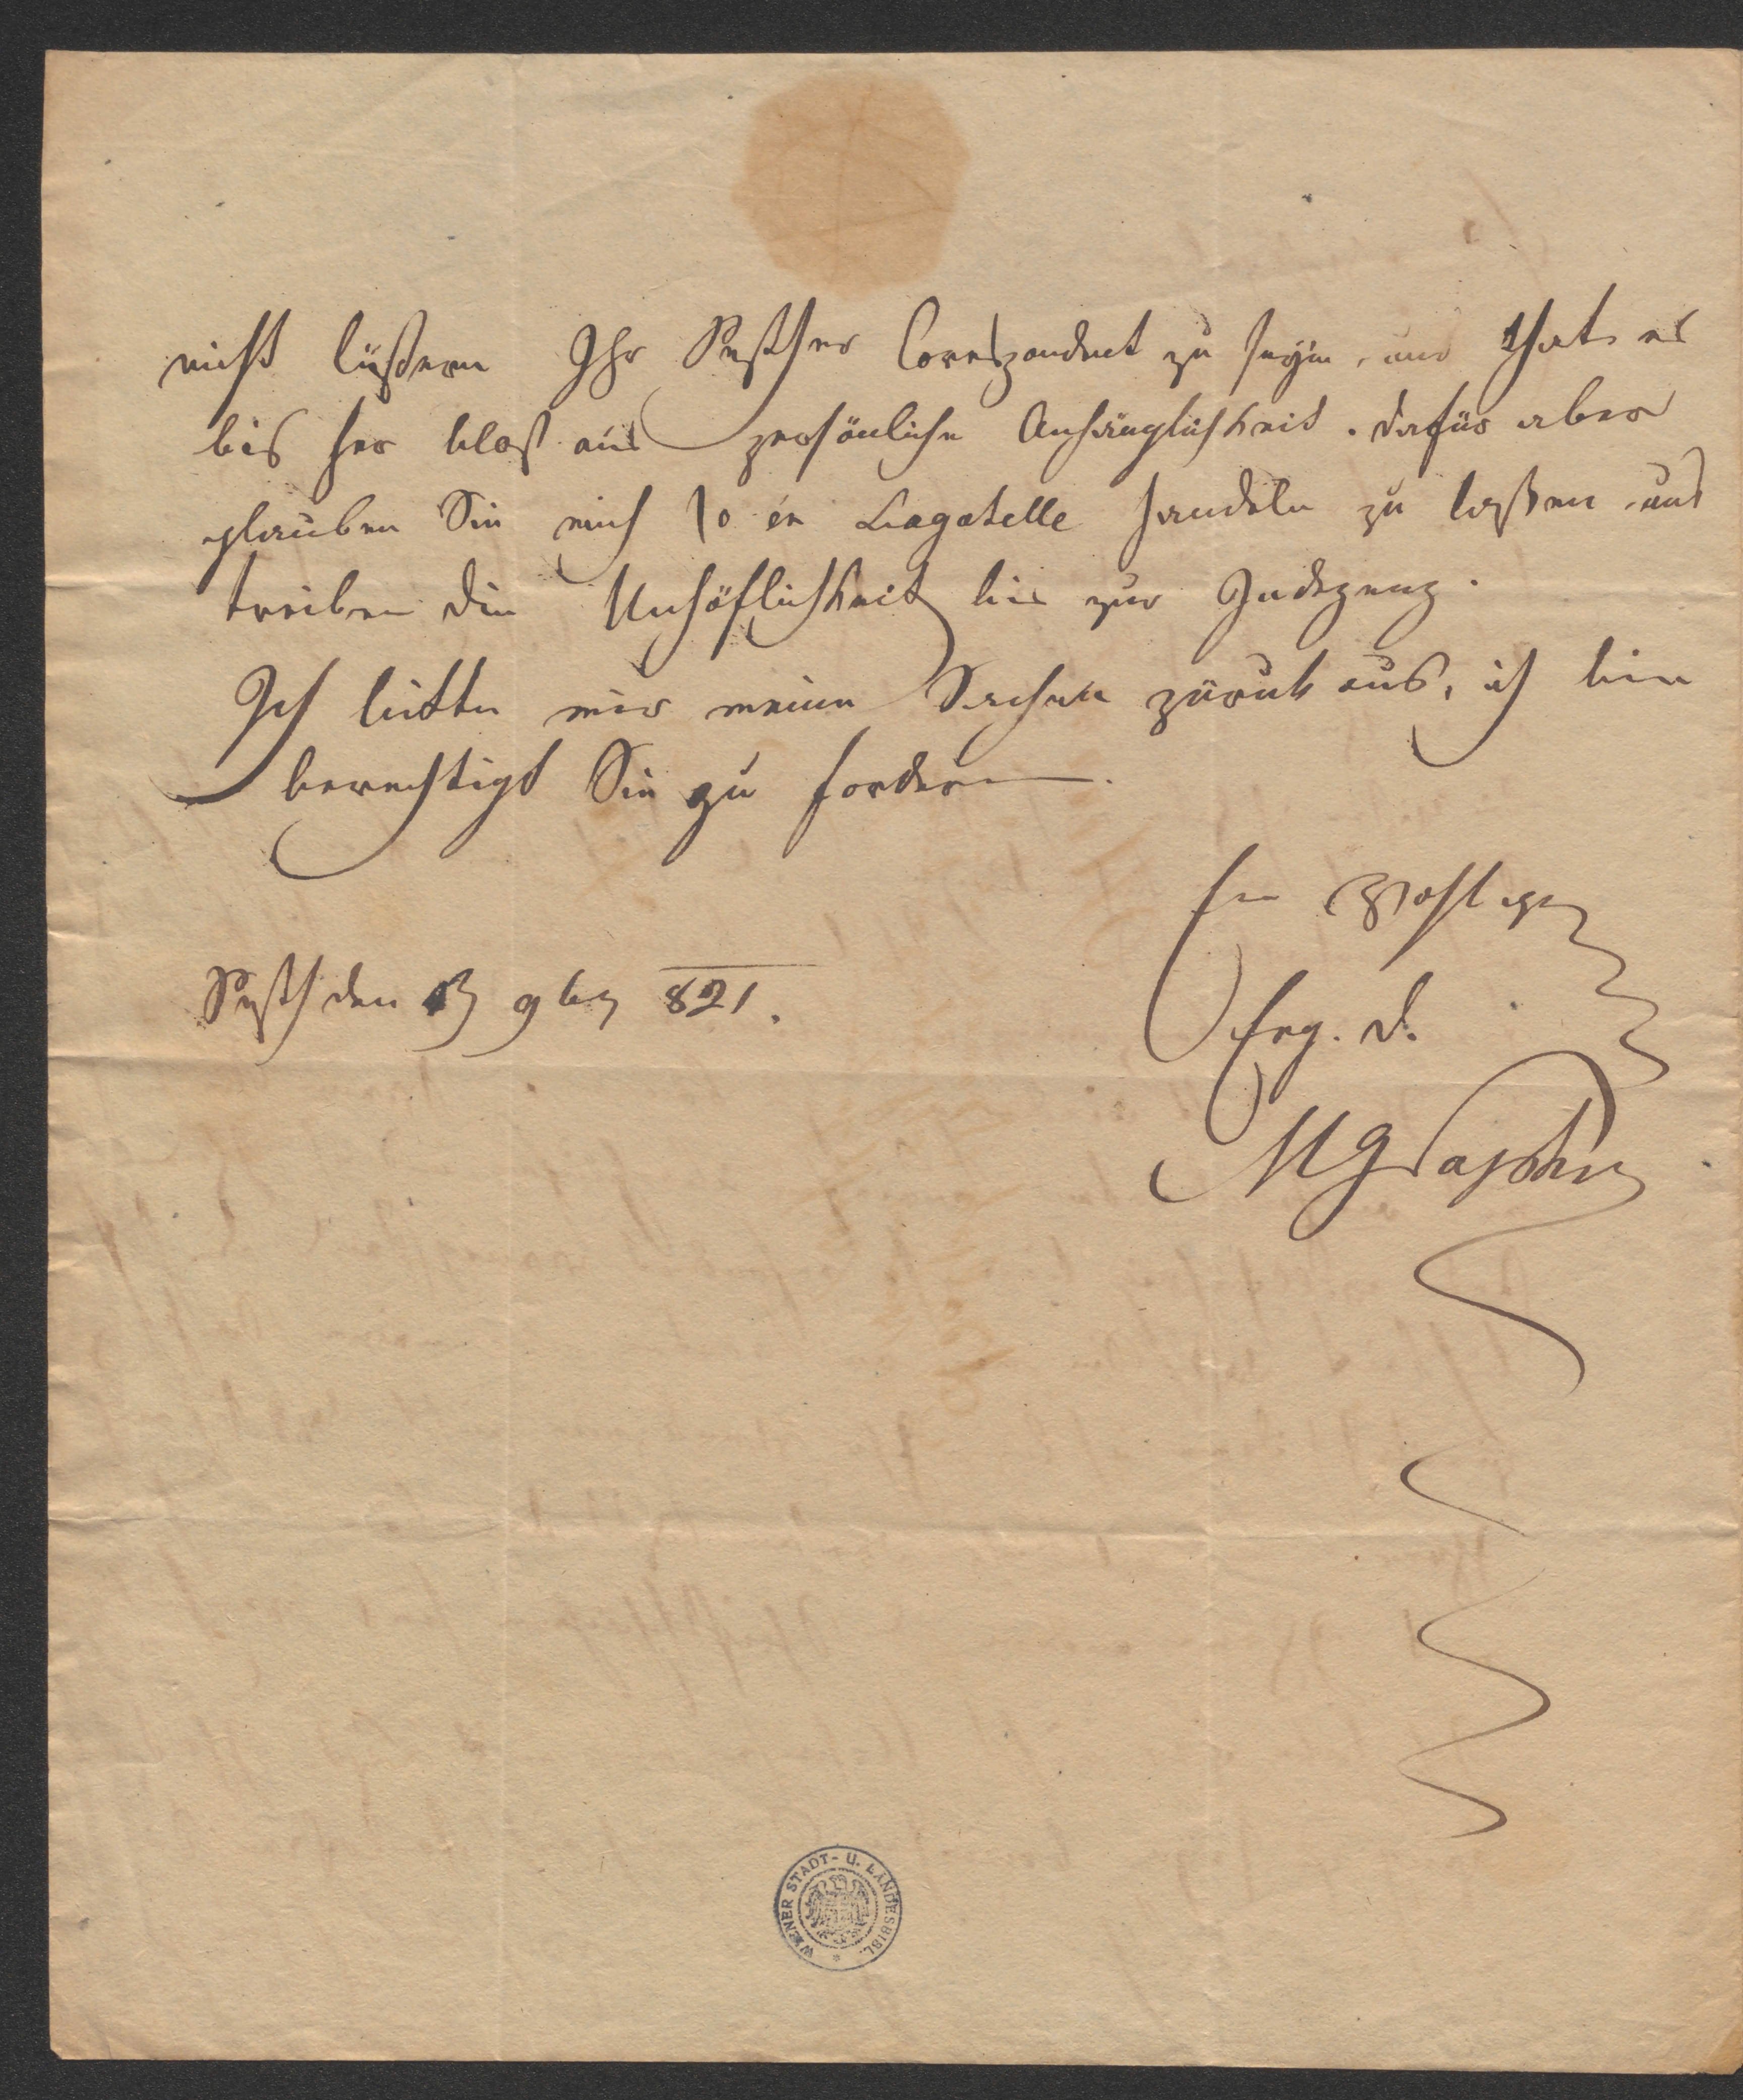 nicht lüstern Ihr Pesther Corespondent zu seyn, und that es
bis her blos aus persönliche Anhänglichkeit. dafür aber
glauben Sie mich so en bagatelle handeln zu laßen und
treiben die Unhöflichkeit bis zur Indezenz.
Ich bitte mir meine Sachen zurück aus, ich bin
berechtigt Sie zu fordern.
Eu Wohlgeb
Pesth den 9br 821.
Erg. D.
WIENER STADT- U. LANDESBIBL.